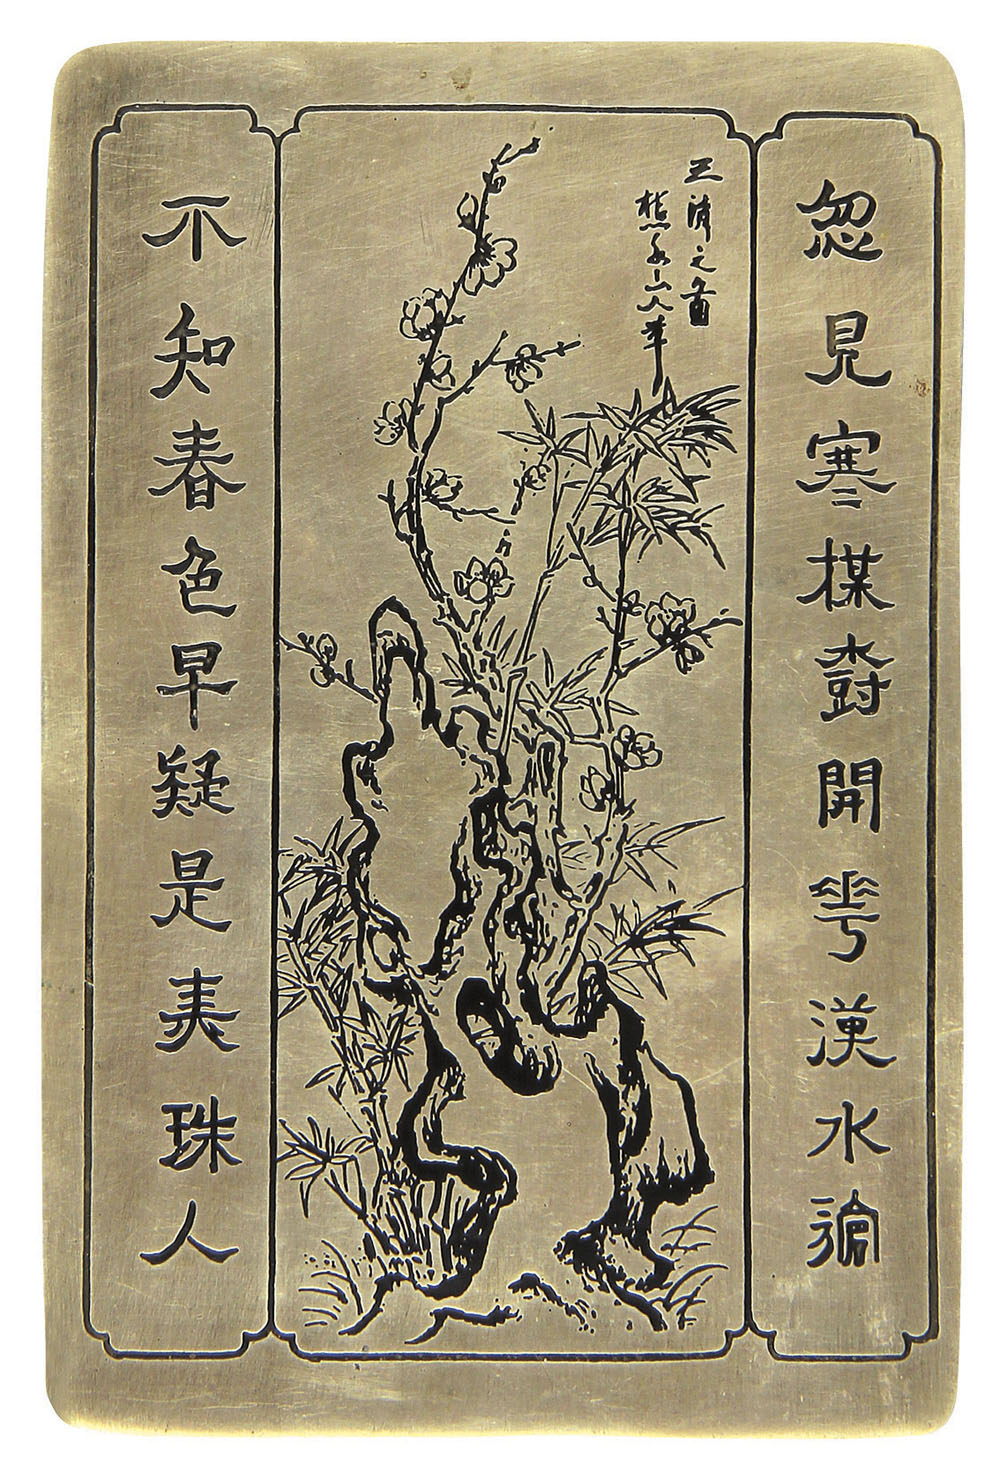 忽見寒楳樹開華漢水濱
三清之
山人
不知春色早疑是弄珠人